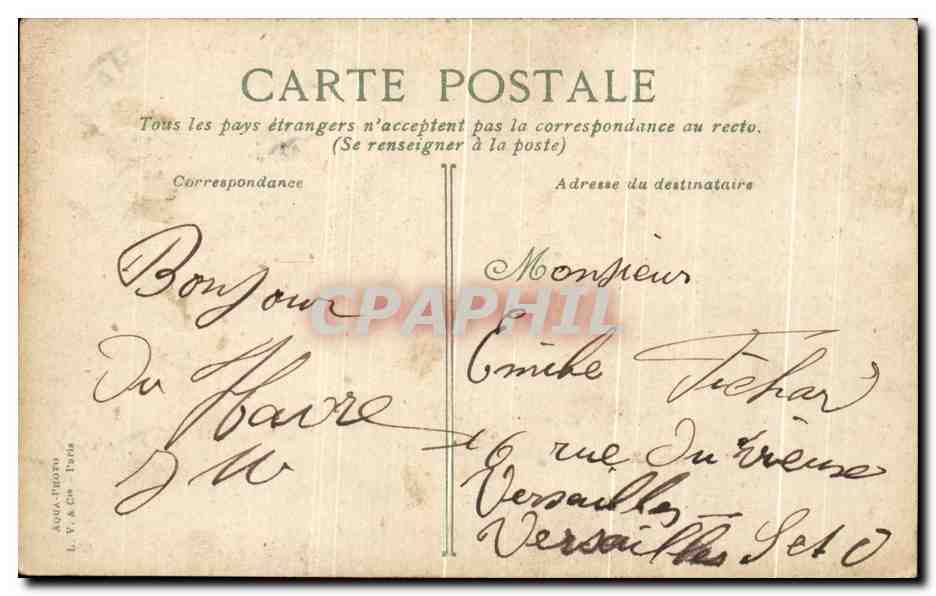 CARTE POSTALE
Tous les pays étrangers n'acceptent pas la correspondance au recto.
(Se renseigner à la poste)
Correspondance
Adresse du destinataire
Bonjour
Du Havre
Monsieur
Emile Fichard
16 rue Du
Versailles
Versailles S et O
CPAPHIL
AQUA-PHOTO
L. V. & Cie - Paris